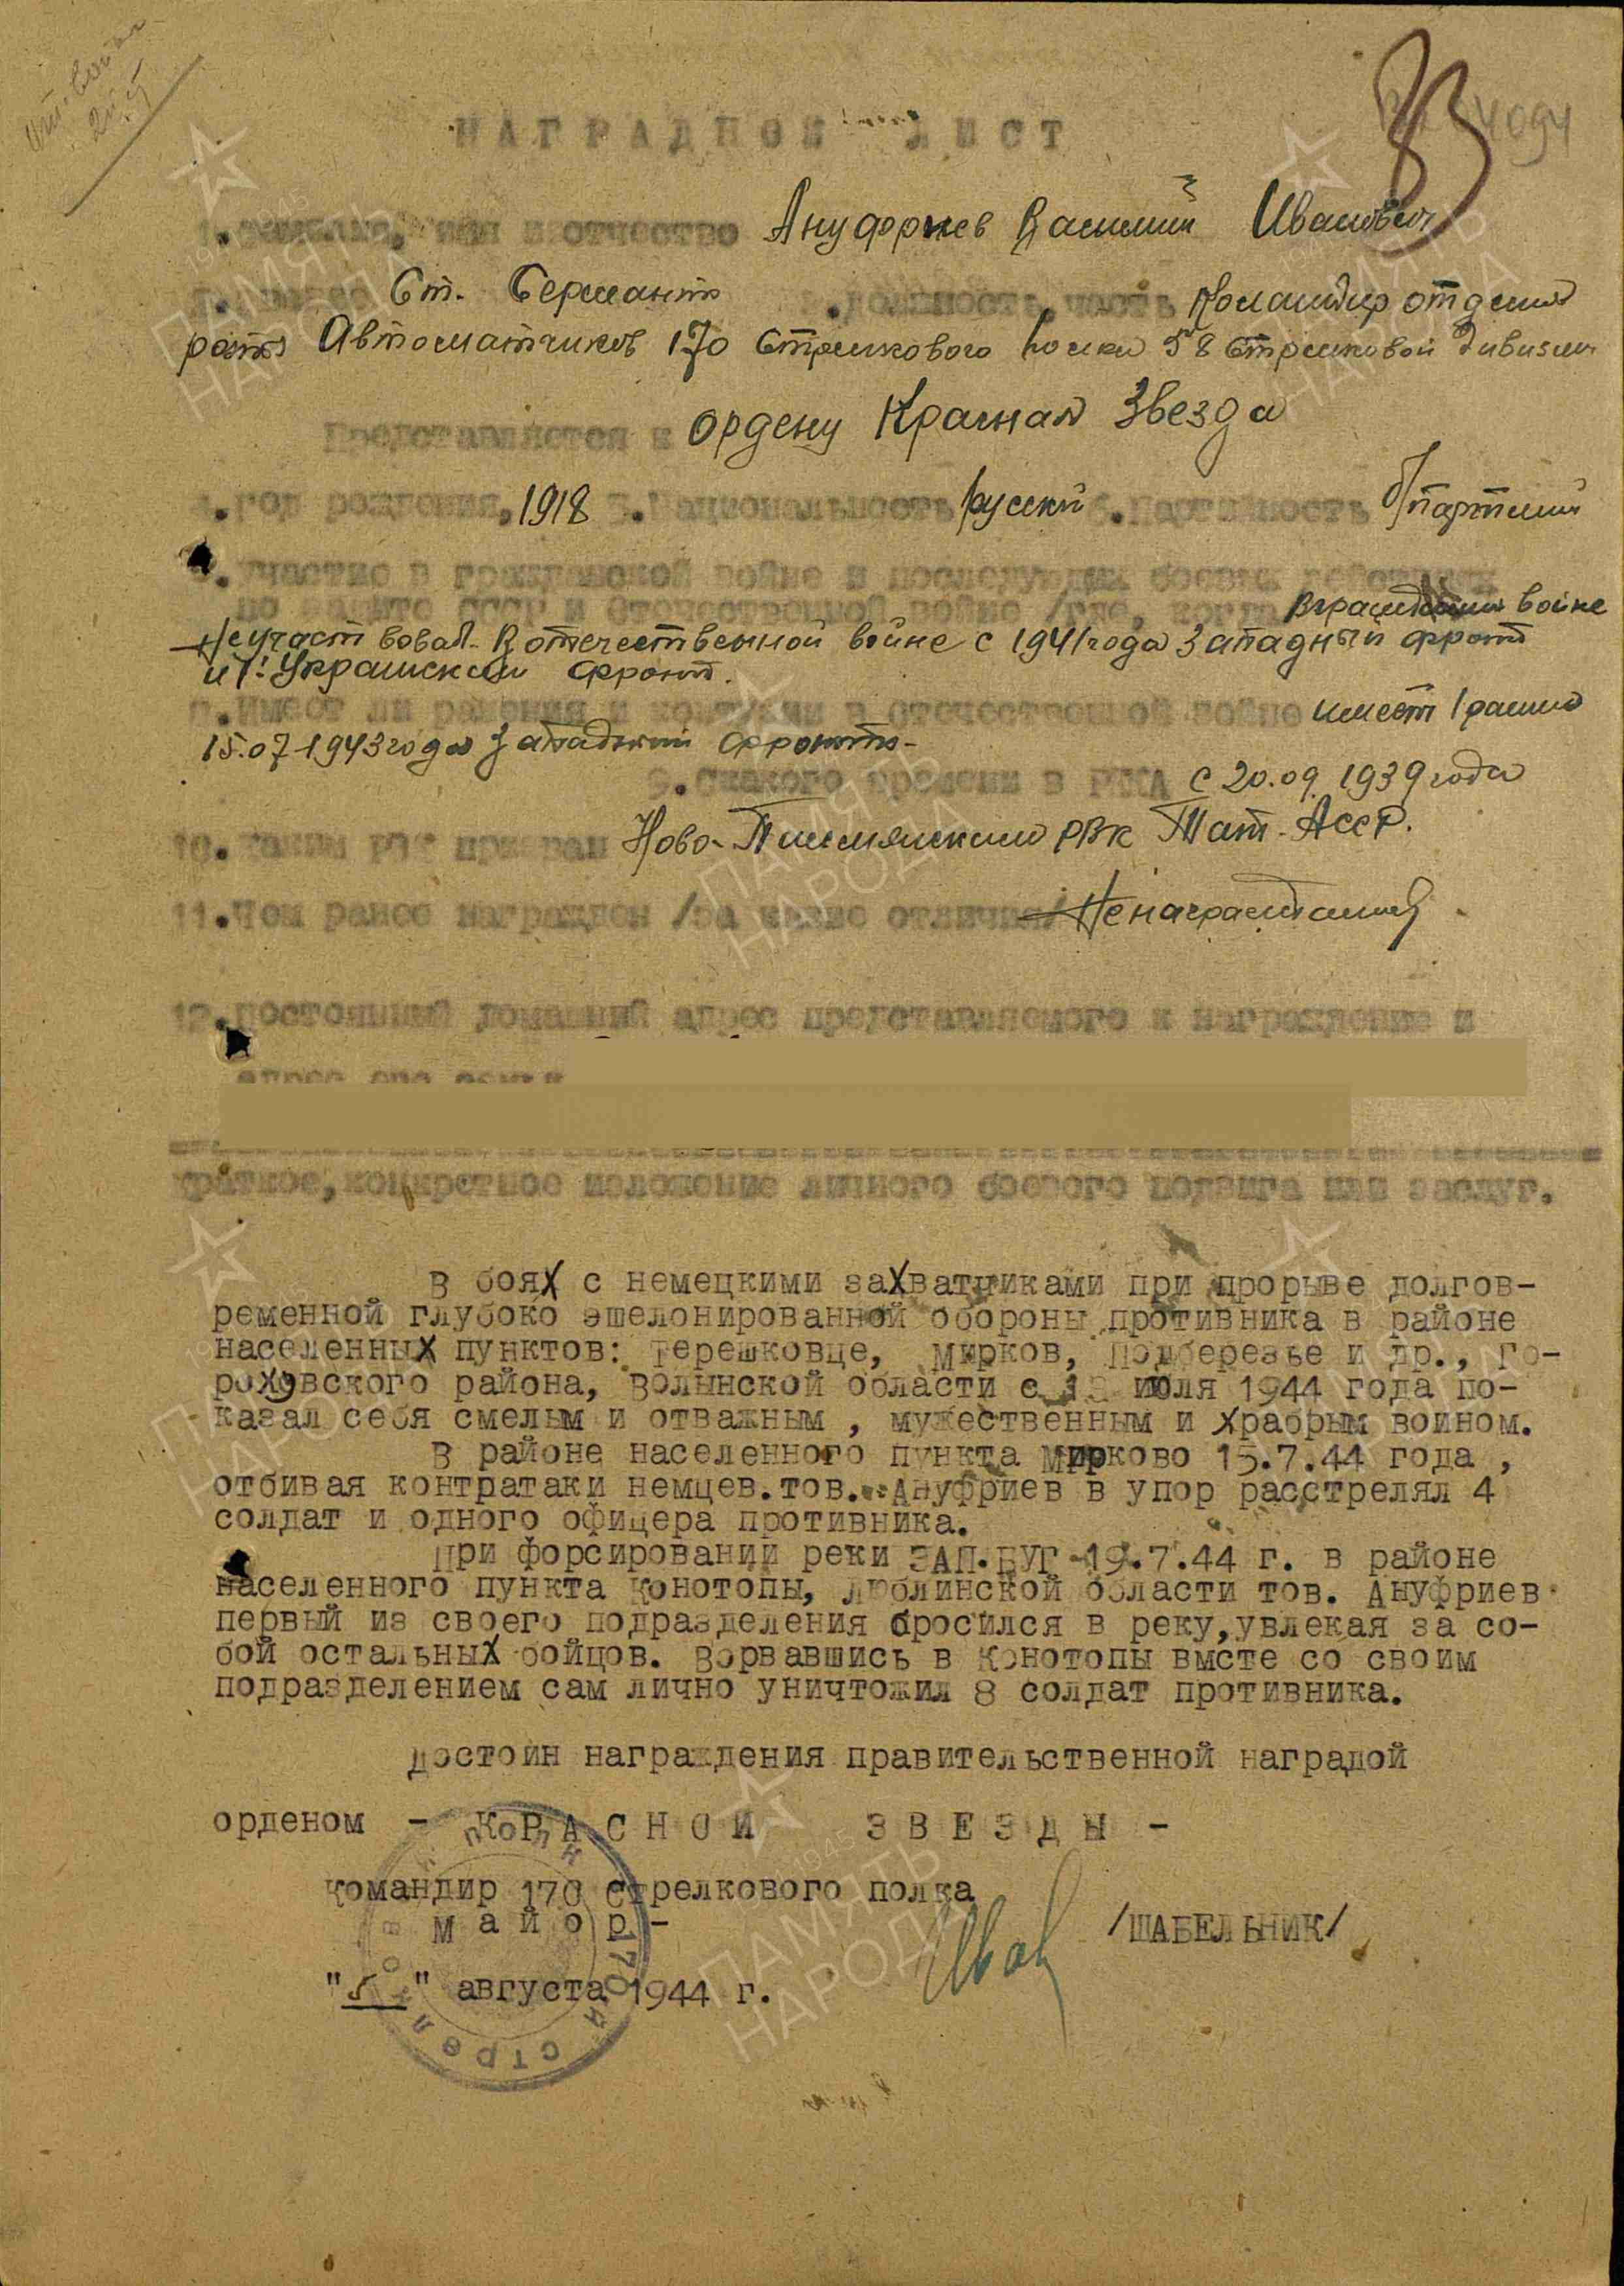 33
4094
НАГРАДНОЙ ЛИСТ
1.Фамилия, имя и отчество Ануфриев Василий Иванович
2.Звание Ст. Сержант 3.Должность, часть Командир отделен
роты Автоматчиков 170 Стрелкового полка 58 Стрелковой дивизии
Представляется к ордену Красная Звезда
4.Год рождения, 1918 5.Национальность русский 6.Партийность б/партийный
7.Участие в гражданской войне и последующих боевых действиях
по защите СССР и Отечественной войне /где, когда В гражданской войне
Не участвовал. В отечественной войне с 1941 года Западный фронт
и 1й Украинский фронт.
8.Имеет ли ранения и контузии в Отечественной войне имеет 1 ранение
15.07-1943 года Западный фронт-
9.Скакого времени в РККА с 20.09.1939 года
10.Каким РВК призван Ново-Письмянским РВК Тат-АССР.
11.Чем ранее награжден /за какие отличия/ Не награжданный.
12.Постоянный домашний адрес представляемого к награждению и
адрес его семьи
Краткое, конкретное изложение личного боевого подвига или заслуг.
В боях с немецкими захватчиками при прорыве долгов-
ременной глубоко эшелонированной обороны противника в районе
населенных пунктов: Терешковце, Мирков, Подберезье и др., Го-
роховского района, Волынской области с июля 1944 года по-
казал себя смелым и отважным , мужественным и храбрым воином.
В районе населенного пункта Мирково 15.7.44 года ,
отбивая контратаки немцев.тов. Ануфриев в упор расстрелял 4
солдат и одного офицера противника.
При форсировании реки ЗАП.БУГ -19.7.44 г. в районе
населенного пункта Конотопы, Люблинской области тов. Ануфриев
первый из своего подразделения бросился в реку,увлекая за со-
бой остальных бойцов. Ворвавшись в Конотопы вмсте со своим
подразделением сам лично уничтожил 8 солдат противника.
Достоин награждения правительственной наградой
орденом - КРАСНОЙ ЗВЕЗДЫ -
Командир 170 стрелкового полка
майор -
/ШАБЕЛЬНИК/
"5" августа 1944 г.
ПАМЯТЬ НАРОДА